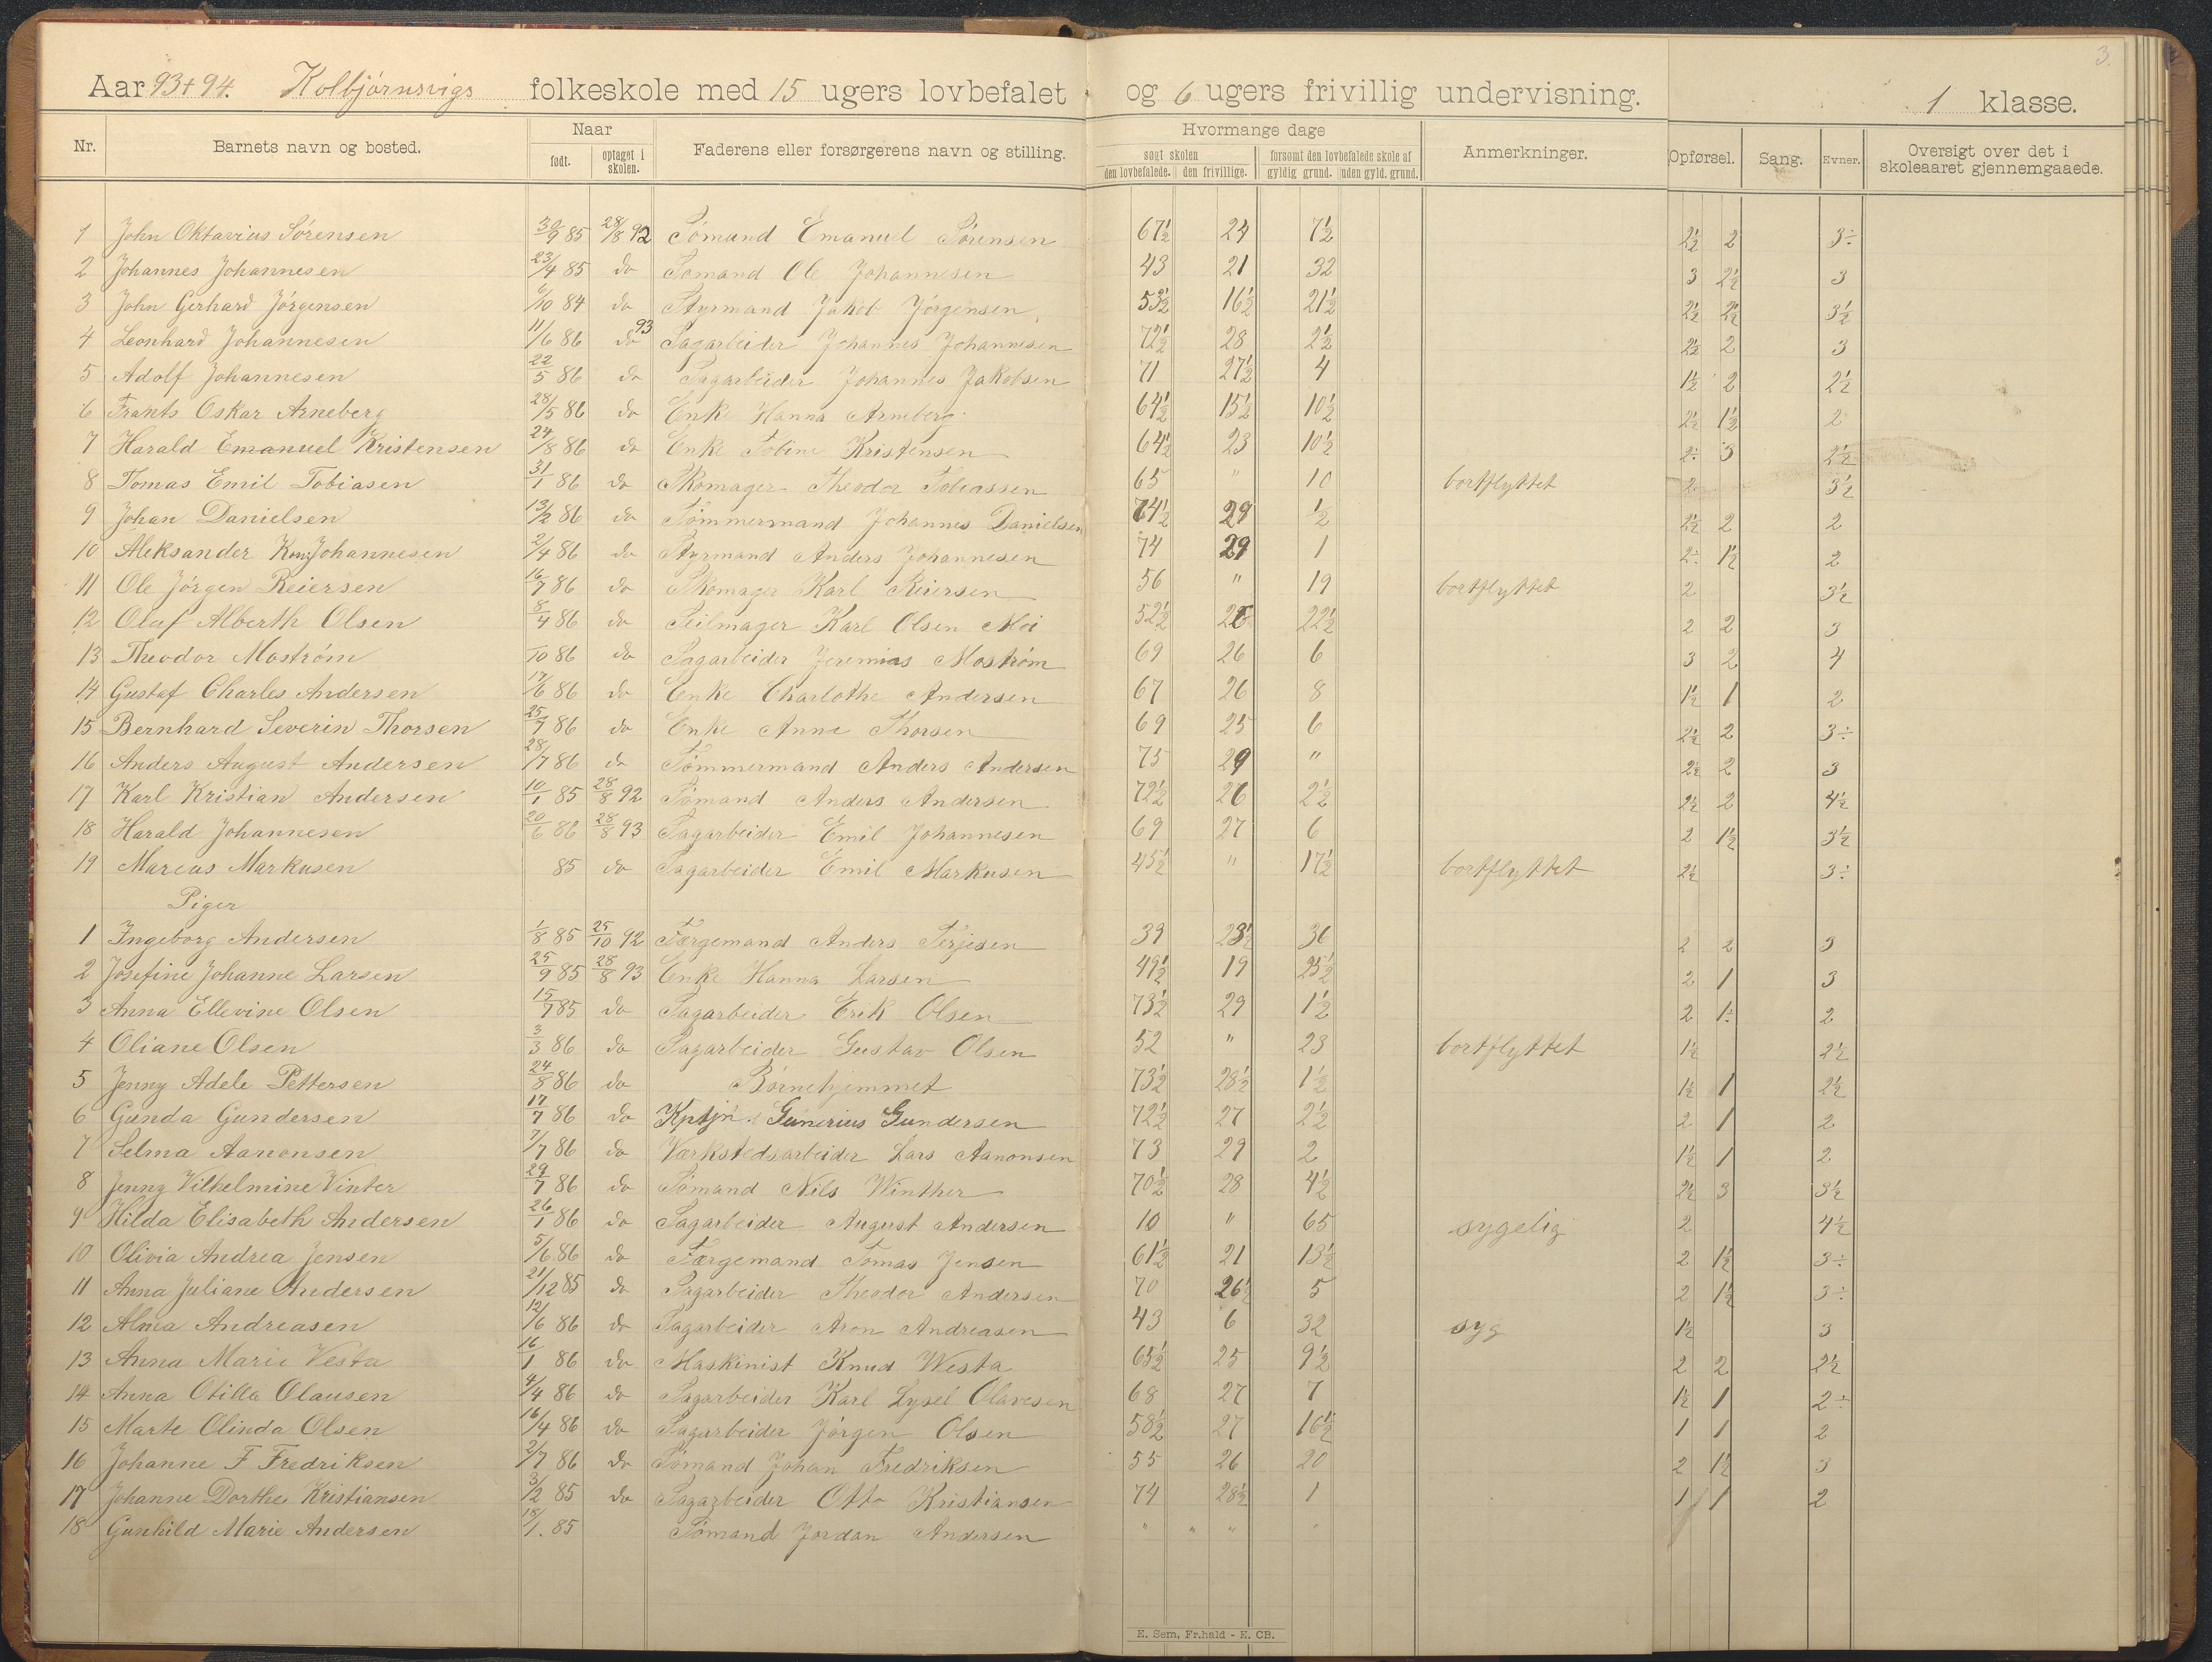 3.
Aar 93+94. Kolbjørnsvigs folkeskole med 15 ugers lovbefalet og 6 ugers frivillig undervisning. 1 klasse.
Nr. Barnets navn og bosted. Naar født. optaget i skolen. Faderens eller forsørgerens navn og stilling. Hvormange dage søgt skolen den lovbefalede. den frivillige. forsømt den lovbefalede skole af gyldig grund. uden gyld. grund. Anmerkninger. Opførsel. Sang. Evner. Oversigt over det i skoleaaret gjennemgaaede.
1 John Oktavius Sørensen 30/9 85 28/8 92 Sømand Emanuel Sørensen 67½ 24 7½ 2½ 2 3÷
2 Johannes Johannesen 23/4 85 do Sømand Ole Johannesen 43 21 32 3 2½ 3
3 John Gerhard Jørgensen 6/10 84 do Styrmand Jakob Jørgensen 53½ 16½ 21½ 2½ 2½ 3½
4 Leonhard Johannesen 11/6 86 do 93 Sagarbeider Johannes Johannesen 72½ 28 2½ 2½ 2 3
5 Adolf Johannesen 22/5 86 do Sagarbeider Johannes Jakobsen 71 27½ 4 1½ 2 2½
6 Frants Oskar Arneberg 28/5 86 do Enke Hanna Arneberg 64½ 15½ 10½ 2½ 1½ 2
7 Harald Emanuel Kristensen 24/8 86 do Enke Tobine Kristensen 64½ 23 10½ 2÷ 3 2½
8 Tomas Emil Tobiasen 31/1 86 do Skomager Theodor Tobiassen 65 " 10 bortflyttet 2 3½
9 Johan Danielsen 13/2 86 do Tømmermand Johannes Danielsen 74½ 29 ½ 2½ 2 2
10 Aleksander Johannesen 2/4 86 do Styrmand Anders Johannesen 74 29 1 2÷ 1½ 2
11 Ole Jørgen Reiersen 16/7 86 do Skomager Karl Reiersen 56 " 19 bortflyttet 2 3½
12 Oluf Alberth Olsen 8/4 86 do Seilmager Karl Olsen Moi 52½ 22½ 2 2 3
13 Theodor Moström 10 86 do Sagarbeider Jeremias Moström 69 26 6 3 2 4
14 Gustaf Charles Andersen 17/6 86 do Enke Charlothe Andersen 67 26 8 1½ 1 2
15 Bernhard Severin Thorsen 25/7 86 do Enke Anne Thorsen 69 25 6 2½ 2 3÷
16 Anders August Andersen 28/7 86 do Tømmermand Anders Andersen 75 29 " 2½ 2 3
17 Karl Kristian Andersen 10/1 85 28/8 92 Sømand Anders Andersen 72½ 26 2½ 2½ 2 4½
18 Harald Johannesen 20/6 86 28/8 93 Sagarbeider Emil Johannesen 69 27 6 2 1½ 3½
19 Marcus Markusen 85 do Sagarbeider Emil Markusen 45½ " 17½ bortflyttet 2½ 3÷
Piger
1 Ingeborg Andersen 1/8 85 25/10 92 Færgemand Anders Terjesen 39 23½ 36 2 2 3
2 Josefine Johanne Larsen 25/9 85 28/8 93 Enke Hanna Larsen 49½ 19 25½ 2 1 3
3 Anna Ellevine Olsen 15/7 85 do Sagarbeider Erik Olsen 73½ 29 1½ 2 1÷ 2
4 Oliane Olsen 3/3 86 do Sagarbeider Gustav Olsen 52 " 23 bortflyttet 1½ 2½
5 Jenny Adele Pettersen 24/8 86 do Børnehjemmet 73½ 28½ 1½ 1½ 1 2½
6 Gunda Gundersen 17/7 86 do Kptjn. Gunerius Gundersen 72½ 27 2½ 2 1 2
7 Selma Aanonsen 7/7 86 do Værkstedsarbeider Lars Aanonsen 73 29 2 1½ 1 2
8 Jenny Vilhelmine Vinter 29/7 86 do Sømand Nils Winther 70½ 28 4½ 2½ 3 3½
9 Hilda Elisabeth Andersen 26/1 86 do Sagarbeider August Andersen 10 " 65 sygelig 2 4½
10 Olivia Andrea Jensen 5/6 86 do Færgemand Tomas Jensen 61½ 21 13½ 2 1½ 3÷
11 Anna Juliane Andersen 21/12 85 do Sagarbeider Theodor Andersen 70 26½ 5 2 1½ 3÷
12 Alma Andreasen 12/6 86 do Sagarbeider Aron Andreasen 43 6 32 syg 1½ 3
13 Anna Marie Vesta 16/1 86 do Maskinist Knud Westa 65½ 25 9½ 2 2 2½
14 Anna Otilla Olausen 4/4 86 do Sagarbeider Karl Lysel Olavesen 68 27 7 1½ 1 2÷
15 Marte Olinda Olsen 16/4 86 do Sagarbeider Jørgen Olsen 58½ 27 16½ 1 1 2
16 Johanne F Fredriksen 2/7 86 do Sømand Johan Fredriksen 55 26 20 2 1½ 3
17 Johanne Dorthe Kristiansen 3/2 85 do Sagarbeider Otto Kristiansen 74 28½ 1 1 1 2
18 Gunhild Marie Andersen 18/1. 85 Sømand Jordan Andersen " " " "
E. Sem, Fr.hald - E. CB.